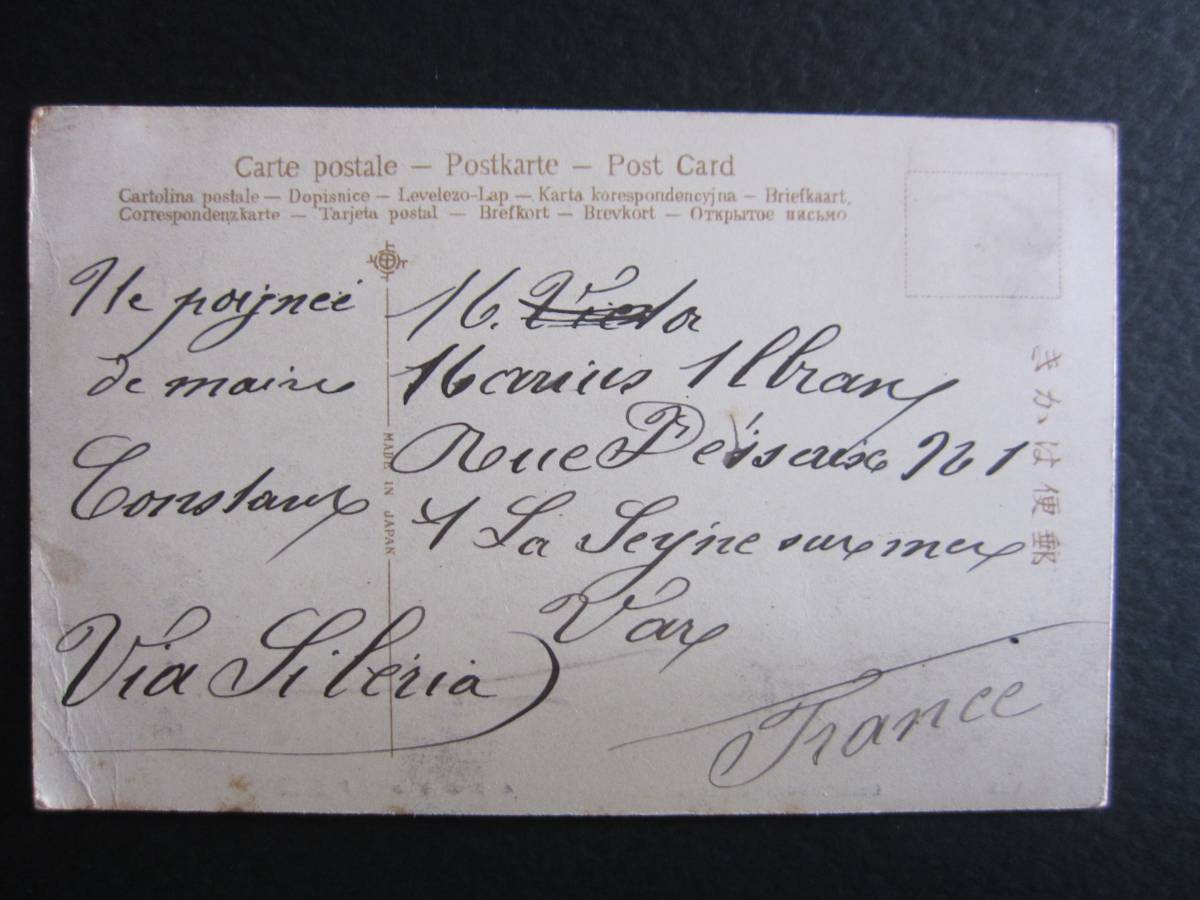 Carte postale — Postkarte — Post Card
Cartolina postale — Dopisnice — Levelezo-Lap — Karta korespondencyjna — Briefkaart.
Correspondenzkarte — Tarjeta postal — Brefkort — Brevkort — Открытое письмо
poignée
de main
Constant
Via Sibéria
MADE IN JAPAN
M.
Marius
Rue N 1
La Seyne sur mer
Var
France
きかは便郵